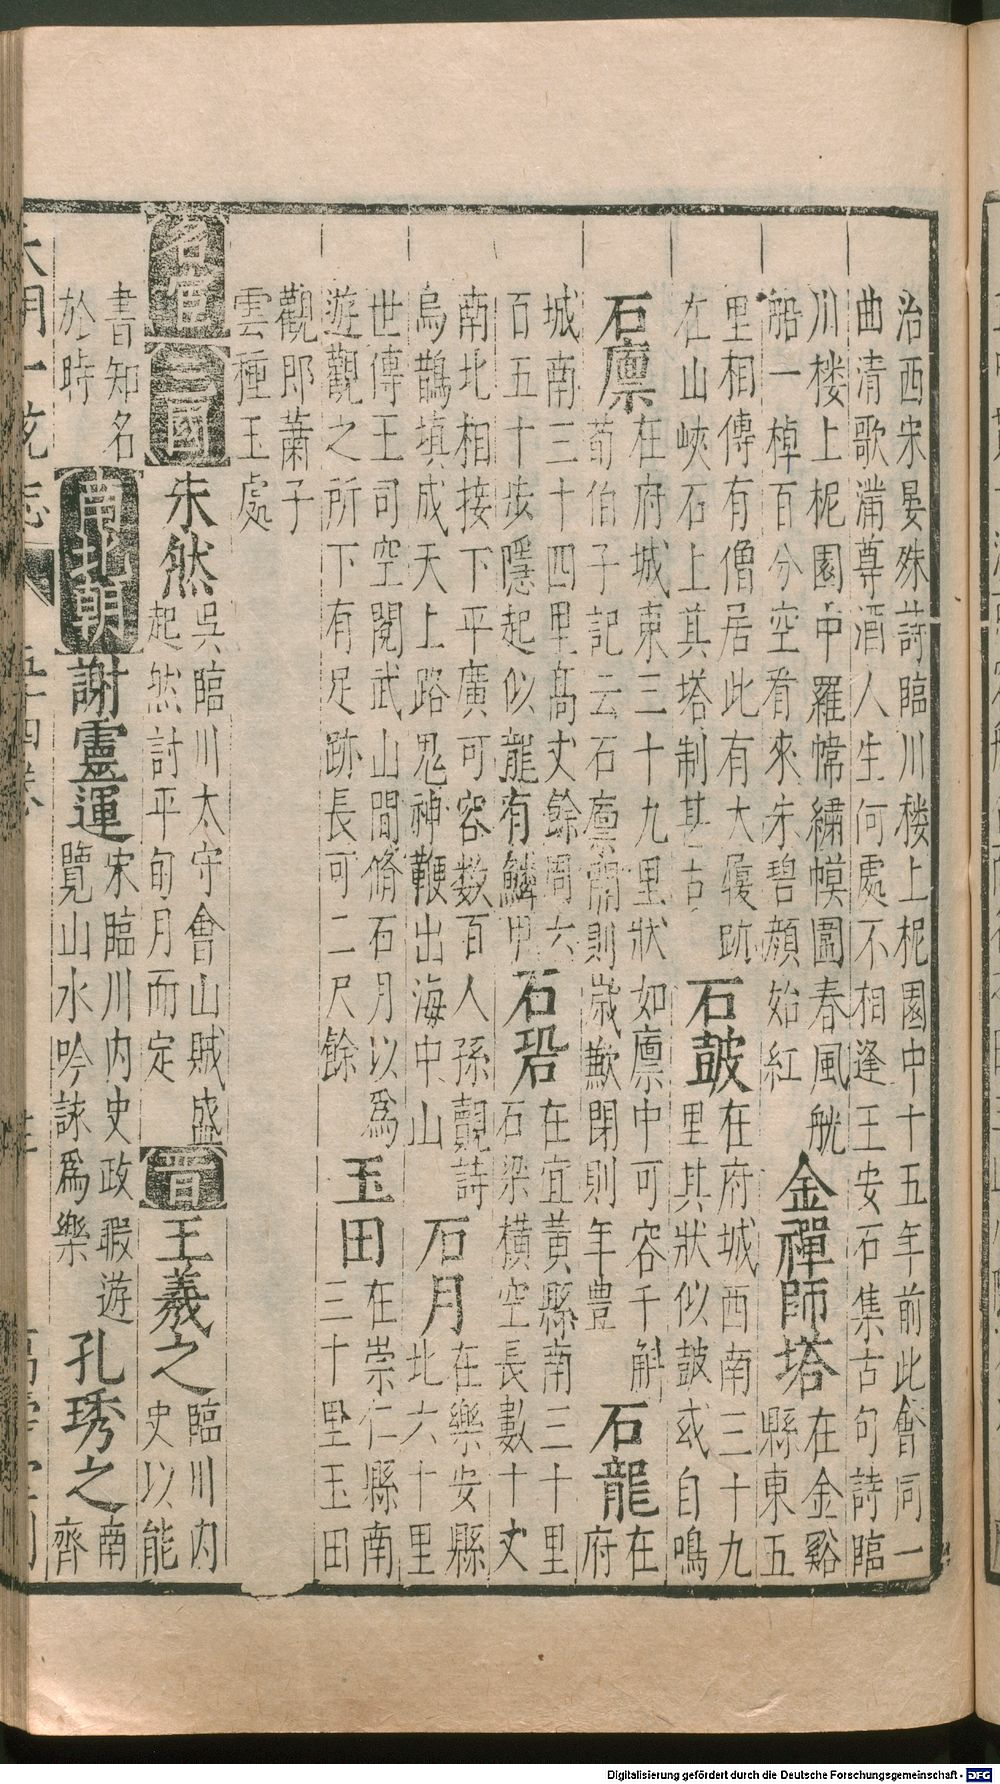 治西宋晏殊詩臨川楼上柅園中十五年前此會同一
曲清歌滿尊酒人生何處不相逢王安石集古句詩臨
川楼上柅園中羅幃繡幙圍春風觥
船一棹百分空看來朱碧顔始紅
金禪師塔
在金谿
縣東五
里相傳有僧居此有大履跡
在山峽石上其塔制甚古
石鼓
在府城西南三十九
里其狀似鼓或自鳴
石廪
在府城東三十九里狀如廪中可容千斛
荀伯子記云石廪開則歲歉閉則年豊
石龍
在
府
城南三十四里高丈餘周六
百五十步隱起似龍有鱗甲
石䂬
在宜黃縣南三十里
石梁橫空長數十丈
南北相接下平廣可容数百人孫覿詩
烏鵲填成天上路鬼神鞭出海中山
石月
在樂安縣
北六十里
世傳王司空閱武山間脩石月以爲
遊觀之所下有足跡長可二尺餘
玉田
在崇仁縣南
三十里玉田
觀郎蕭子
雲種玉處
名宦
三國
朱然
吳臨川太守會山賊盛
起然討平旬月而定
晉
王羲之
臨川内
史以能
書知名
於時
南北朝
謝靈運
宋臨川内史政暇遊
覽山水吟詠爲樂
孔琇之
南
齊
大明一統志
五十四卷